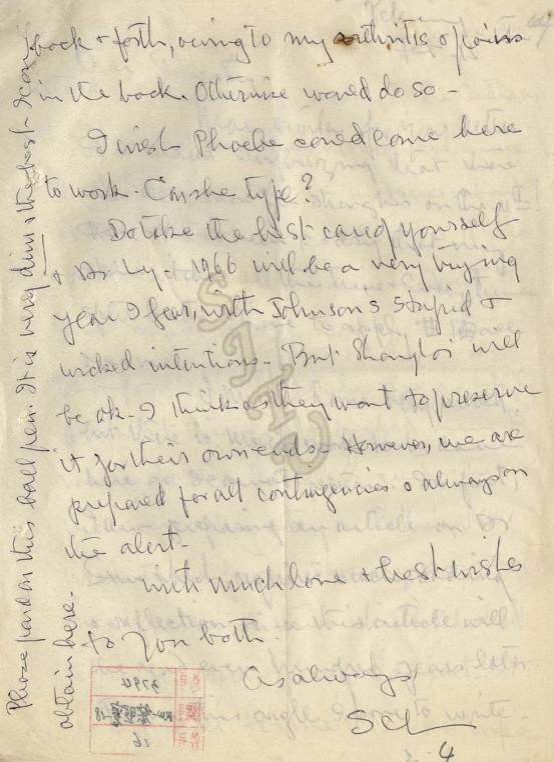 back & forth, owing to my arthritis & pains
in the back. Otherwise would do so -
I wish Phoebe could come here
to work. Can she type?
Do take the best care of yourself
& Dr Ly - 1966 will be a very trying
year I fear, with Johnson's stupid &
wicked intentions - But Shanghai will
be ok - I think as they want to preserve
it, for their own ends. However, we are
prepared for all contingencies & always on
the alert -
with much love & best wishes
to you both
As always
SCL
4
Please pardon this ball pen. It is very dim & the best I can
obtain here.
3794
16